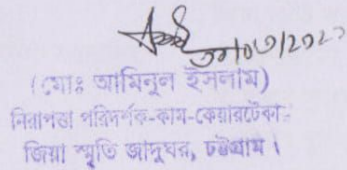 ৩০/০৩/২০২০
(মোঃ আমিনুল ইসলাম)
নিরাপত্তা পরিদর্শক-কাম-কেয়ারটেকার
জিয়া স্মৃতি জাদুঘর, চট্টগ্রাম।